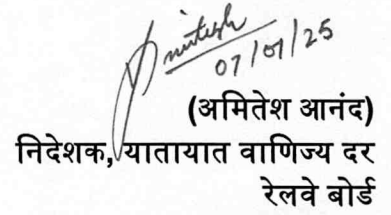 Amitesh
07/07/25
(अमितेश आनंद)
निदेशक, यातायात वाणिज्य दर
रेलवे बोर्ड